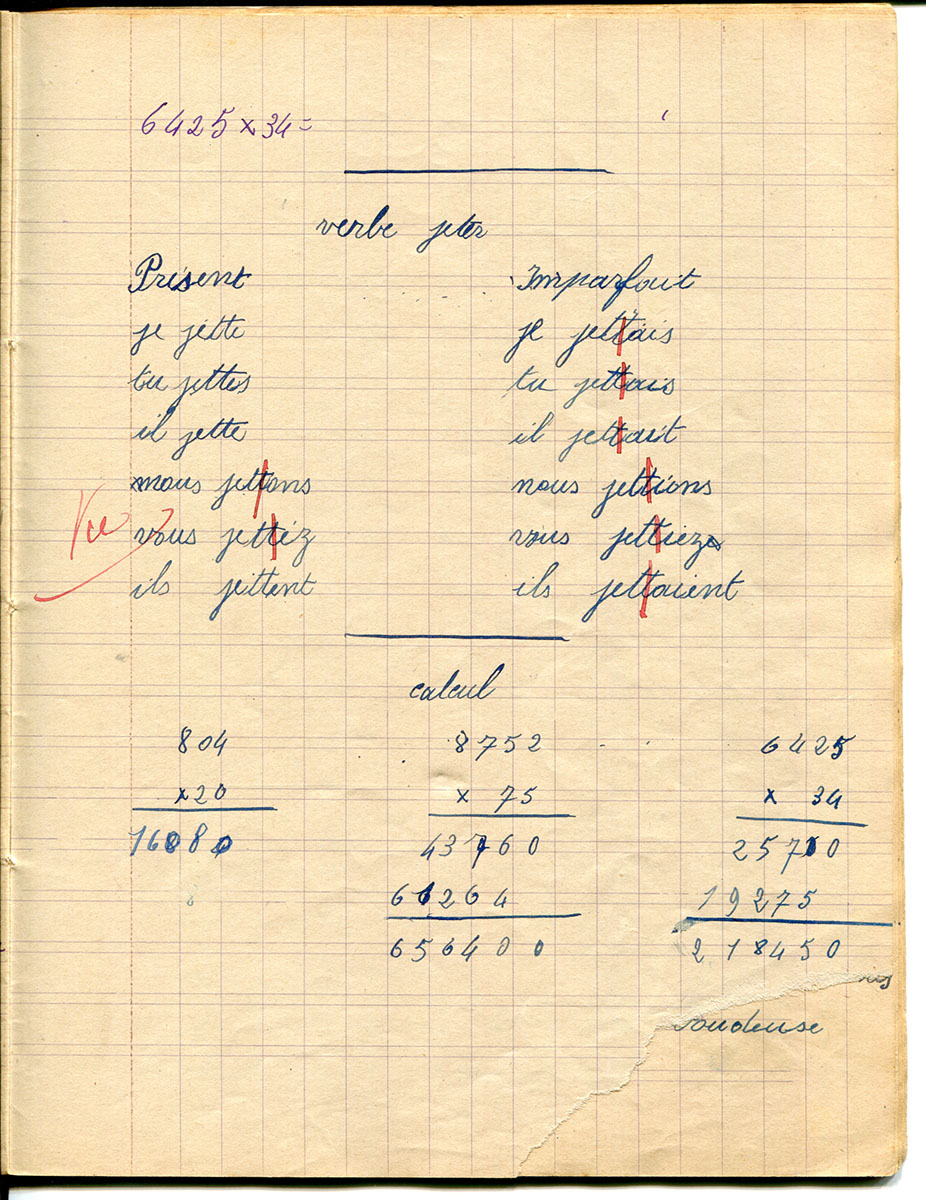 6425 x 34 =
verbe jeter
Présent Imparfait
je jette je jettais
tu jettes tu jettais
il jette il jettait
nous jettons nous jettions
Vu vous jettez vous jettiez
ils jettent ils jettaient
calcul
804 8752 6425
x 20 x 75 x 34
16080 43760 25700
61264 19275
656400 218450